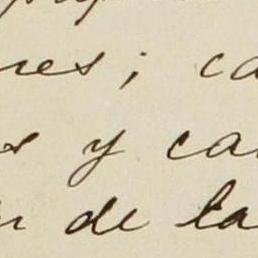 res; ca
s y ca
de la